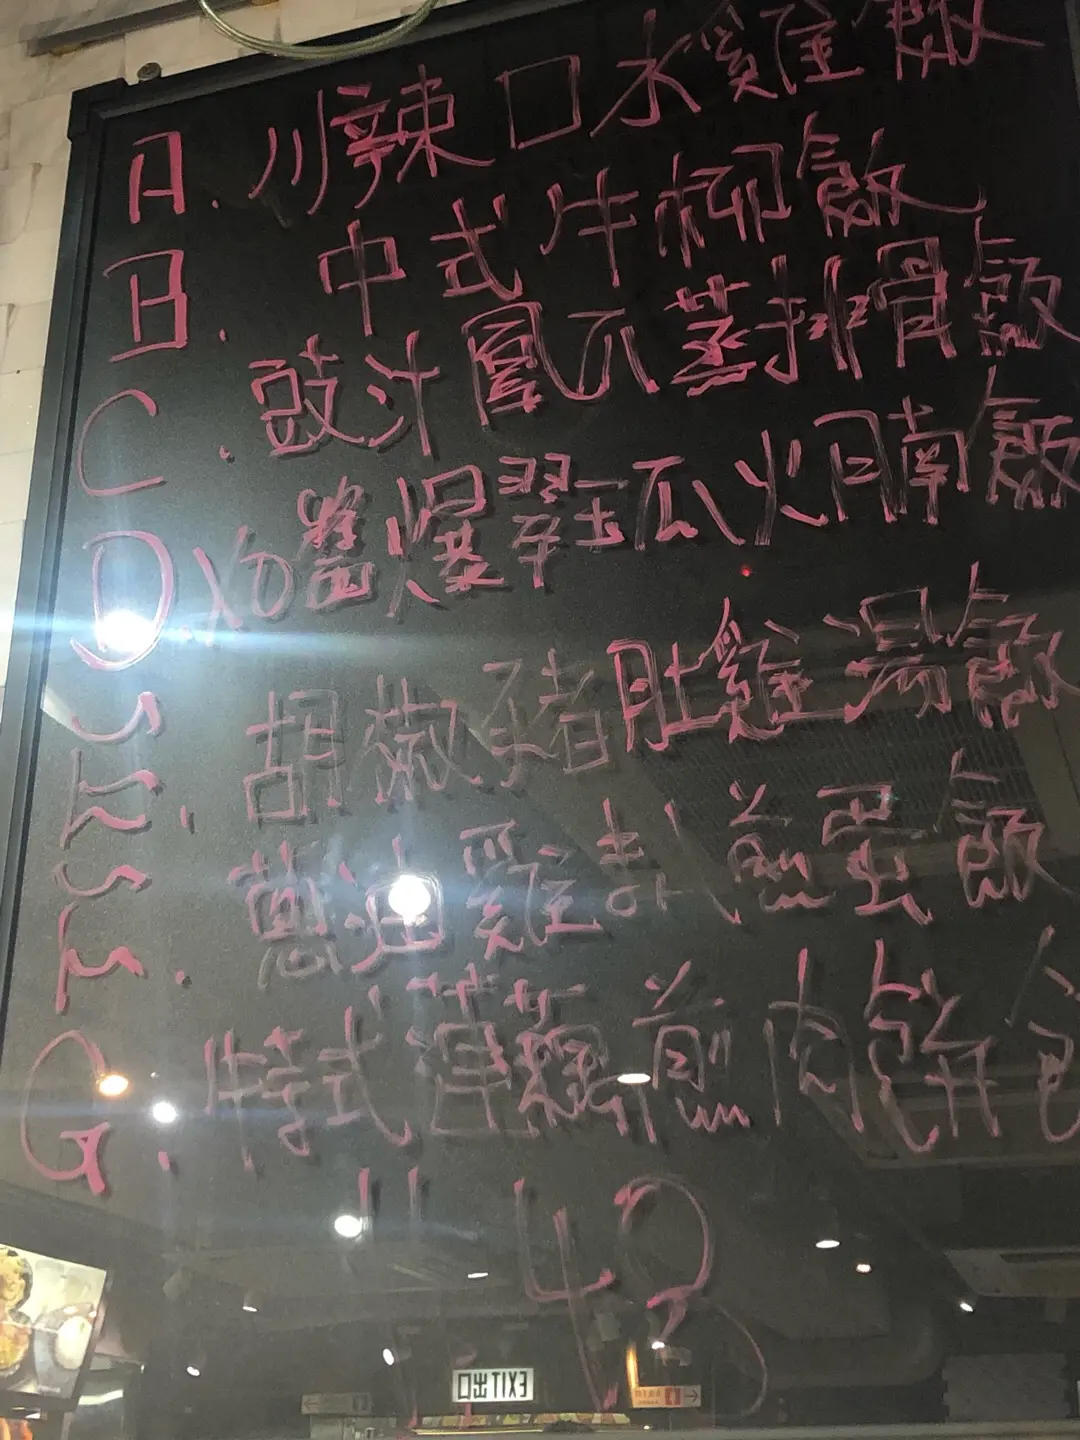 A. 川辣口水雞飯
B. 中式牛柳飯
C. 豉汁鳳爪蒸排骨飯
D. XO醬爆翠玉瓜火腩飯
E. 胡椒豬肚雞湯飯
F. 蔥油雞扒煎蛋飯
G. 特式蓮藕煎肉餅
43
EXIT出口